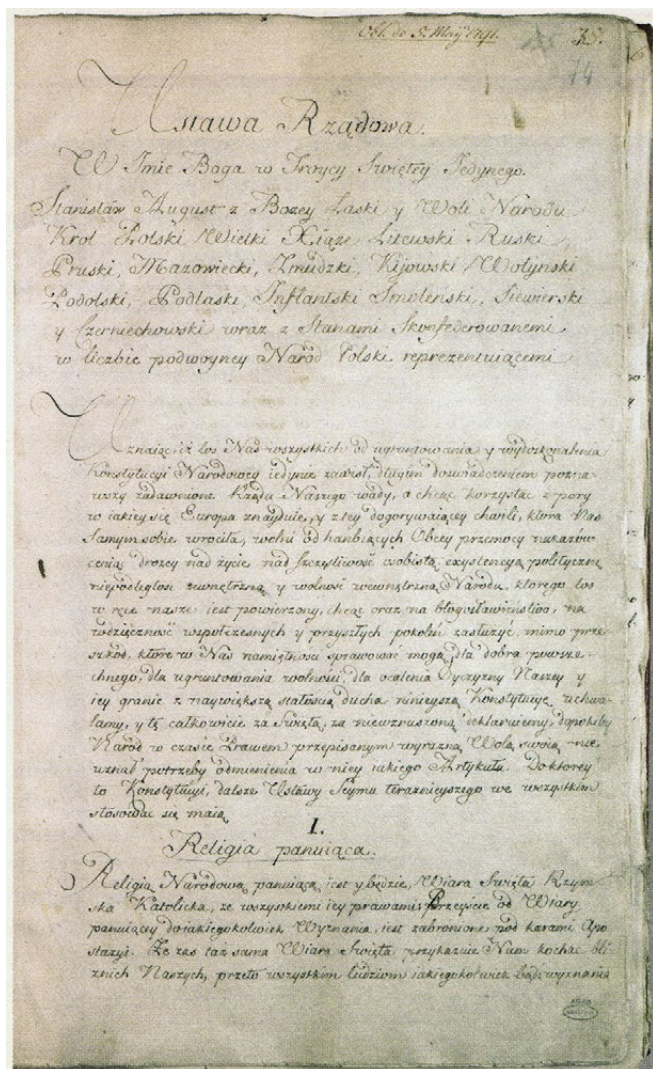 Obl. do 5. Maij 1791.
14
Ustawa Rządowa.
W Imie Boga w Troycy Swiętey Jedynego.
Stanisław August z Bozey Łaski y Woli Narodu
Krol Polski Wielki Xiąze Litewski Ruski,
Pruski, Mazowiecki, Zmudzki, Kijowski Wołynski
Podolski, Podlaski, Inflantski Smolenski, Siewierski
y Czerniechowski wraz z Stanami Skonfederowanemi
w liczbie podwoyney Narod Polski reprezentuiącemi
Uznaiąc, iż los Nas wszystkich od ugruntowania y wydoskonalenia
Konstytucyi Narodowey iedynie zawisł, długim doswiadczeniem pozna-
wszy zadawnione Rządu Naszego wady, a chcąc korzystać z pory
w iakiey się Europa znayduie, y z tey dogorywaiącey chwili, ktora Nas
samym sobie wrociła, wolni od hanbiących Obcey przemocy nakazow
ceniąc drozey nad życie nad szczęsliwosć osobistą, existencyą polityczną
niepodległosć zewnętrzną y wolnosć wewnętrzną Narodu, ktorego los
w ręce nasze iest powierzony, chcąc oraz na błogosławienstwo, na
wdzięcznosć wspołczesnych y przyszłych pokolen zasłużyć, mimo prze-
szkod, ktore w Nas namiętnosci sprawować mogą, dla dobra powsze-
chnego, dla ugruntowania wolnosci, dla ocalenia Oyczyzny Naszey y
iey granic z naywiększą stałoscią ducha ninieyszą Konstytucyę uchwa-
lamy, y tę całkowicie za Swiętą, za niewzruszoną deklaruiemy, dopokiby
Narod w czasie Prawem przepisanym wyrazną Wolą swoią nie
uznał potrzeby odmienienia w niey iakiego Artykułu. Do ktorey
to Konstytucyi, dalsze Ustawy Seymu teraznieyszego we wszystkim
stosować się maią
I.
Religia panuiąca.
Religią Narodową panuiącą iest y będzie, Wiara Swięta Rzym-
ska Katolicka, ze wszystkiemi iey prawami. Przeyscie od Wiary
panuiącey do iakiegokolwiek Wyznania, iest zabronione pod karami Apo-
stazyi. Że zas taż sama Wiara Swięta przykazuie Nam kochać bli-
znich Naszych, przeto wszystkim ludziom iakiegokolwiek bądz wyznania